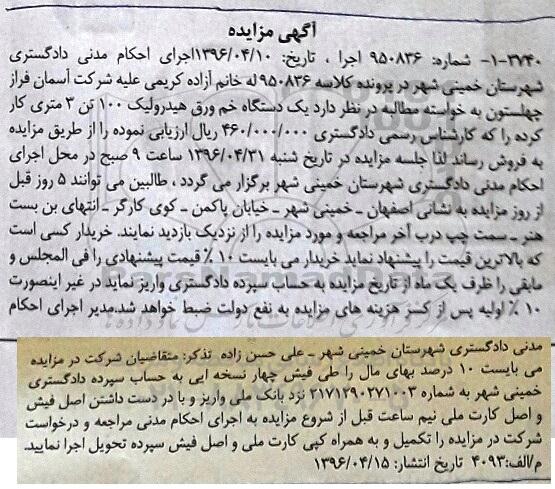 آگهی مزایده
۱-۳۷۴۰- شماره: ۹۵۰۸۳۶ اجرا ، تاریخ: ۱۳۹۶/۰۴/۱۰اجرای احکام مدنی دادگستری
شهرستان خمینی شهر در پرونده کلاسه ۹۵۰۸۳۶ له خانم آزاده کریمی علیه شرکت آسمان فراز
چهلستون به خواسته مطالبه در نظر دارد یک دستگاه خم ورق هیدرولیک ۱۰۰ تن ۳ متری کار
کرده را که کارشناس رسمی دادگستری ۴۶۰/۰۰۰/۰۰۰ ریال ارزیابی نموده را از طریق مزایده
به فروش رساند لذا جلسه مزایده در تاریخ شنبه ۱۳۹۶/۰۴/۳۱ ساعت ۹ صبح در محل اجرای
احکام مدنی دادگستری شهرستان خمینی شهر برگزار می گردد ، طالبین می توانند ۵ روز قبل
از روز مزایده به نشانی اصفهان ـ خمینی شهر ـ خیابان پاکمن ـ کوی کارگر ـ انتهای بن بست
هنر ـ سمت چپ درب آخر مراجعه و مورد مزایده را از نزدیک بازدید نمایند. خریدار کسی است
که بالاترین قیمت را پیشنهاد نماید خریدار می بایست ۱۰ ٪ قیمت پیشنهادی را فی المجلس و
مابقی را ظرف یک ماه از تاریخ مزایده به حساب سپرده دادگستری واریز نماید در غیر اینصورت
۱۰ ٪ اولیه پس از کسر هزینه های مزایده به نفع دولت ضبط خواهد شد.مدیر اجرای احکام
مدنی دادگستری شهرستان خمینی شهر ـ علی حسن زاده تذکر: متقاضیان شرکت در مزایده
می بایست ۱۰ درصد بهای مال را طی فیش چهار نسخه ایی به حساب سپرده دادگستری
خمینی شهر به شماره ۲۱۷۱۲۹۰۲۷۱۰۰۳ نزد بانک ملی واریز و با در دست داشتن اصل فیش
و اصل کارت ملی نیم ساعت قبل از شروع مزایده به اجرای احکام مدنی مراجعه و درخواست
شرکت در مزایده را تکمیل و به همراه کپی کارت ملی و اصل فیش سپرده تحویل اجرا نمایید.
م/الف:۴۰۹۳ تاریخ انتشار: ۱۳۹۶/۰۴/۱۵
ParsNamadData